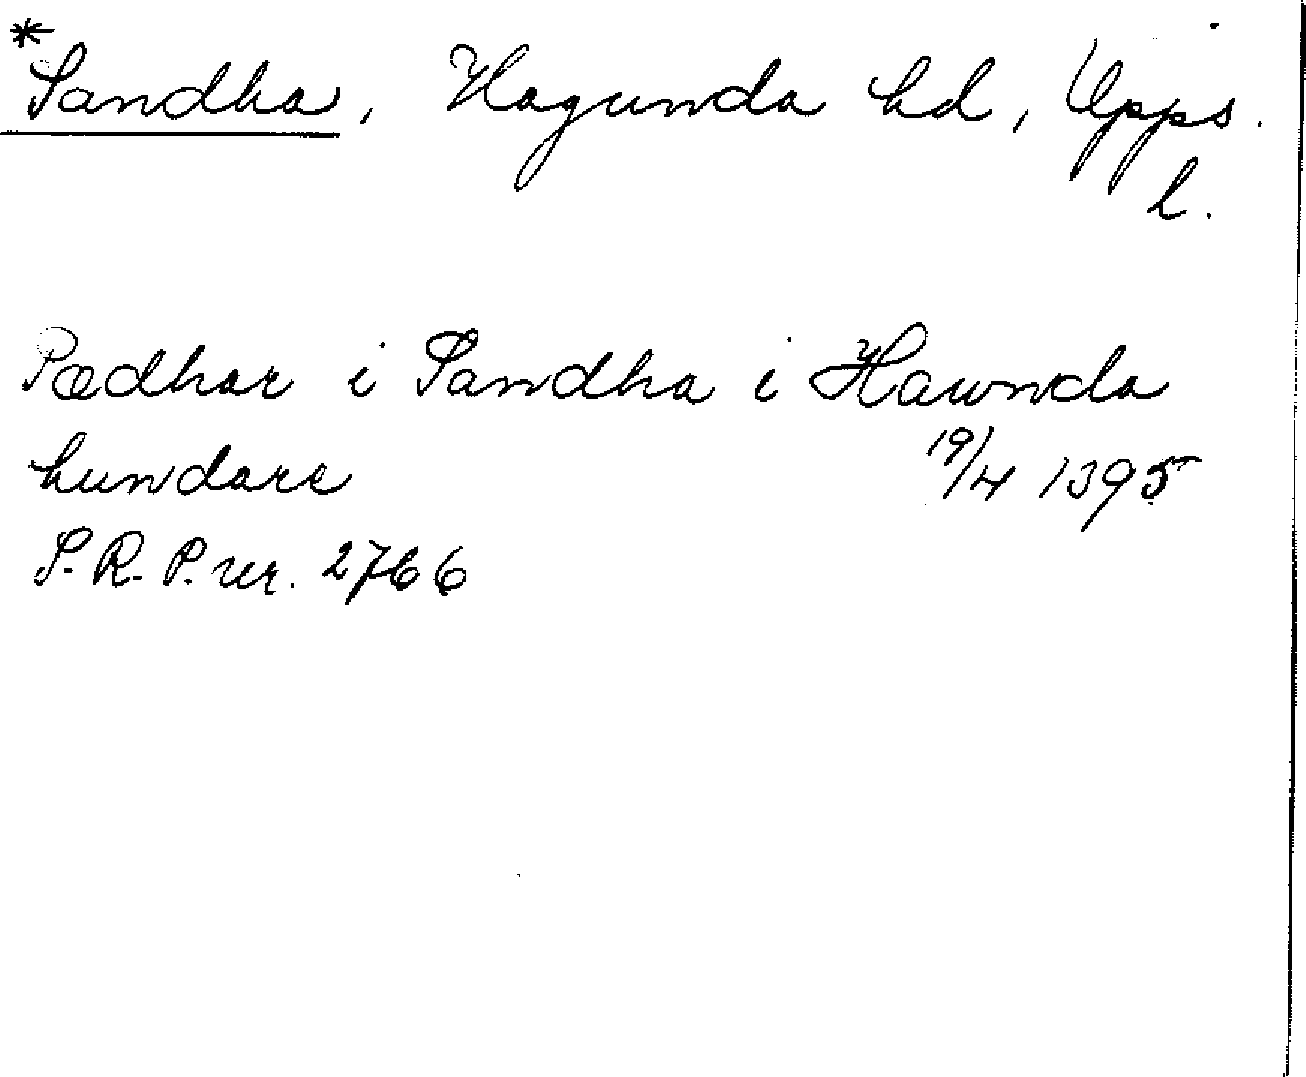 *Sandha, Hagunda hd, Upps.
l.
Pædhar i Sandha i Hawnda
hundare 19/4 1395
S.R.P. nr. 2766